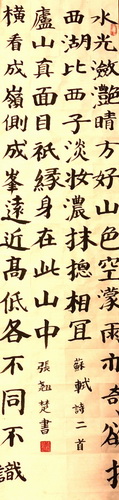 水光瀲灩晴方好山色空濛雨亦奇欲把
西湖比西子淡妝濃抹摠相宜
蘇軾詩二首
橫看成嶺側成峯遠近高低各不同不識
廬山真面目祇緣身在此山中
張楚書